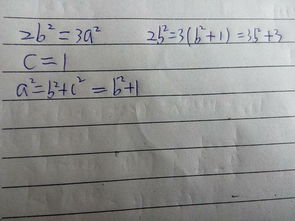 2b²=3a² 2b²=3(b²+1)=3b²+3
c=1
a²=b²+c²=b²+1